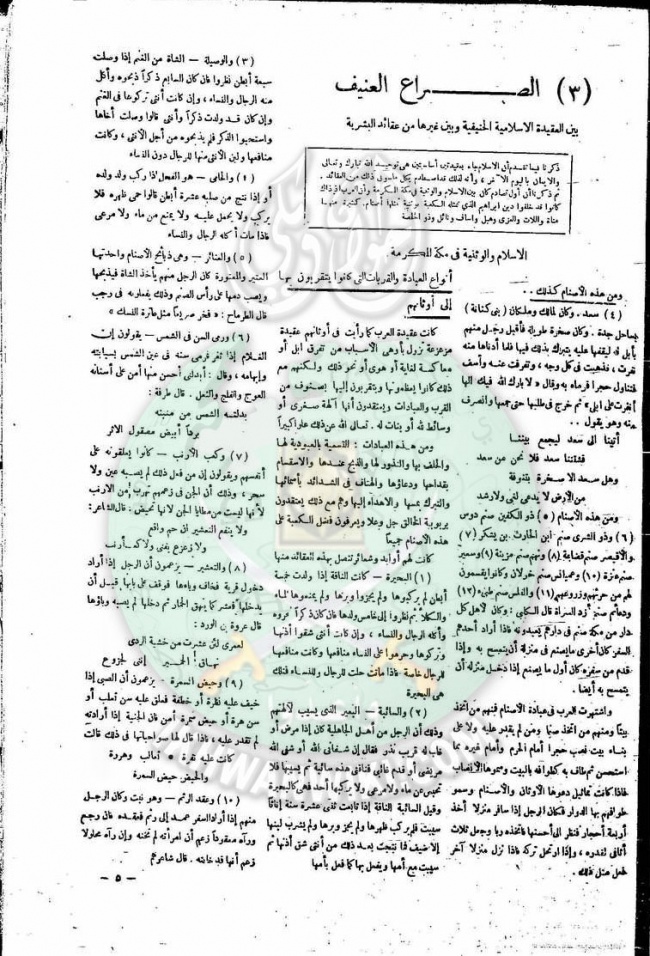 (٣) الصراع العنيف
بين العقيدة الاسلامية الحنيفية وبين غيرها من عقائد البشرية
ذكرنا فيما تقدم أن الاسلام جاء بعقيدتين أساسيتين هى توحيد الله تبارك وتعالى
والايمان باليوم الآخر ، وأنه لذلك تصادم بكل ماسوى ذلك من العقائد .
ثم ذكرنا أن أول تصادم كان بين الاسلام والوثنية فى مكة المكرمة وأن العرب اذ ذاك
كانوا قد خلفوا دين ابراهيم الذي تمثله الكعبة بوثنية تمثلها أصنام كثيرة منها
مناة واللات والعزى وهبل واساف ونائل وذو الخلصة
الاسلام والوثنية فى مكة المكرمة
ومن هذه الأصنام كذلك ..
(٤) سعد . وكان لمالك وملكان ( بنى كنانة )
بساحل جدة . وكان صخرة طويلة فأقبل رجل منهم
بابل له ليقفها عليه يتبرك بذلك فيها فلما أدناها منه
نفرت ، فذهبت فى كل وجه ، وتفرقت عنه وأسف
فتناول حجرا فرماه به وقال « لا بارك الله فيك الها
أنفرت على ابلى » ثم خرج فى طلبها حتى جمعها وانصرف
عنه وهو يقول ..
أتينا الى سعد ليجمع بيننا
فشتتنا سعد فلا نحن من سعد
وهل سعد الا صخرة بتنوفة
من الأرض لا يدعى لغى ولا رشد
ومن هذه الأصنام (٥) ذو الكفين صنم دوس
(٦) وذو الشرى صنم ابن الحارث بن يشكر (٧)
والأقيصر صنم قضاعة (٨) ونهم صنم مزينة (٩) وسعير
صنم عنزة (١٠) وعميانس صنم خولان وكانوا يقسمون
لهم من حرثهم وزروعهم (١١) والفلس صنم طيء (١٢)
صنم أزد السراة قال الكلبي : وكان لأهل كل
دار من مكة صنم فى دارهم يعبدونه فاذا أراد أحدهم
السفر كان آخر ما يصنع فى منزله أن يتمسح به واذا
قدم من سفره كان أول ما يصنع إذا دخل منزله أن
يتمسح به أيضا .
واشتهرت العرب فى عبادة الأصنام فمنهم من اتخذ
بيتا ومنهم من اتخذ صنما ومن لم يقدر عليه ولا على
بناء بيت نصب حجرا أمام الحرم وأمام غيره مما
استحسن ثم طاف به كطوافه بالبيت وسموها الأنصاب
فاذا كانت تماثيل دعوها الأوثان والأصنام وسموا
طوافهم بها الدوار فكان الرجل إذا سافر منزلا أخذ
أربعة أحجار فنظر الى أحسنها فاتخذه ربا وجعل ثلاث
أثافى لقدره ، وإذا ارتحل تركه فاذا نزل منزلا آخر
فعل مثل ذلك .
أنواع العبادة والقربات التى كانوا يتقربون بها
إلى أوثانهم
كانت عقيدة العرب كما رأيت فى أوثانهم عقيدة
مزعزعة تزول بأوهى الأسباب من تفرق ابل أو
معاكسة لغاية أو هوى أو نحو ذلك ولكنهم مع
ذلك كانوا يعظمونها ويتقربون إليها بصنوف من
القرب والعبادات ويعتقدون أنها آلهة صغرى أو
وسائط لله أو بنات له . تعالى الله عن ذلك علوا كبيراً
ومن هذه العبادات : التسمية بالعبودية لها
والحلف بها والنذور لها والذبح عندها والاستقسام
بقداحها ودعاؤها والهتاف فى الشدائد بأسمائها
والتبرك بمسها والاهداء إليها وهم مع ذلك يعتقدون
بربوبية الخالق جل وعلا ويعرفون فضل الكعبة على
هذه الأصنام جميعاً
كانت لهم أوابد وشعائر تتصل بهذه العقائد منها
(١) البحيرة — كانت الناقة إذا ولدت خمسة
أبطن لم يركبوها ولم يجزوا وبرها ولم يمنعوها الماء
والكلأ ثم نظروا إلى خامس ولدها فان كان ذكرا نحروه
وأكله الرجال والنساء ، وإن كانت أنثى شقوا أذنها
وتركوها وحرموا على النساء منافعها وكانت منافعها
للرجال خاصة فاذا ماتت حلت للرجال والنساء فتلك
هى البحيرة
(٢) والسائبة — البعير الذى يسيب لآلهتهم
وذلك أن الرجل من أهل الجاهلية كان إذا مرض أو
غاب له قريب نذر فقال إن شفانى الله أو شفى الله
مريضى أو قدم غائبى فناقتى هذه سائبة ثم يسيبها فلا
تحبس عن ماء ولا مرعى ولا يركبها أحد فهى كالبحيرة
وقيل السائبة الناقة إذا تابعت ثنتى عشرة سنة إناثا
سيبت فلم يركب ظهرها ولم يجز وبرها ولم يشرب لبنها
إلا ضيف فما نتجت بعد ذلك من أنثى شق أذنها ثم
سيبت مع أمها ويفعل بها كما فعل بأمها
(٣) والوصيلة — الشاة من الغنم إذا وصلت
سبعة أبطن نظروا فان كان السابع ذكراً ذبحوه وأكل
منه الرجال والنساء ، وإن كانت أنثى تركوها فى الغنم
وإن كان قد ولدت ذكراً وأنثى قالوا وصلت أخاها
واستحيوا الذكر فلم يذبحوه من أجل الأنثى ، وكانت
منافعها ولبن الأنثى منها للرجال دون النساء
(٤) والحامى — هو الفحل إذا ركب ولد ولده
أو إذا نتج من صلبه عشرة أبطن قالوا حمى ظهره فلا
يركب ولا يحمل عليه ولا يمنع من ماء ولا مرعى
فاذا مات أكله الرجال والنساء
(٥) والعتائر — وهى ذبائح الأصنام واحدتها
العتير والمعتورة كان الرجل منهم يأخذ الشاة فيذبحها
ويصب دمها على رأس الصنم وذلك يفعلونه فى رجب
قال الطرماح : « فخر صريعاً مثل عاترة النسك »
(٦) ورمى السن فى الشمس — يقولون إن
الغلام إذا ثغر فرمى سنه فى عين الشمس بسبابته
وإبهامه ، وقال : أبدلنى أحسن منها أمن على أسنانه
العوج والفلج والثعل . قال طرفة :
بدلته الشمس من منبته
برداً أبيض مصقول الأشر
(٧) وكعب الأرنب — كانوا يعلقونه على
أنفسهم ويقولون إن من فعل ذلك لم يصبه عين ولا
سحر ، وذلك أن الجن فى زعمهم تهرب من الأرنب
لأنها ليست من مطايا الجن لأنها تحيض . قال الشاعر :
ولا ينفع التعشير ان حم واقع
ولا زعزع يغنى ولا كعب أرنب
(٨) والتعشير — يزعمون أن الرجل إذا أراد
دخول قرية فخاف وباءها فوقف على بابها قبل أن
يدخلها فعشر كما ينهق الحمار ثم دخلها لم يصبه وباؤها
قال عروة بن الورد :
لعمرى لئن عشرت من خشية الردى
نهاق الحمير إننى لجزوع
(٩) وحيض السمرة — يزعمون أن الصبى إذا
خيف عليه نظرة أو خطفة فعلق عليه سن ثعلب أو
سن هرة أو حيض سمرة أمن فان الجنية إذا أرادته
لم تقدر عليه ، فاذا قال لها صواحباتها فى ذلك قالت
كانت عليه نفرة ثعالب وهررة
والحيض حيض السمرة
(١٠) وعقد الرتم — وهو نبت وكان الرجل
منهم إذا أراد السفر عمد إلى رتم فعقده فان رجع
ورآه معقوداً زعم أن امرأته لم تخنه وإن رآه محلولا
زعم أنها قد خانته . قال شاعرهم
— ٥ —